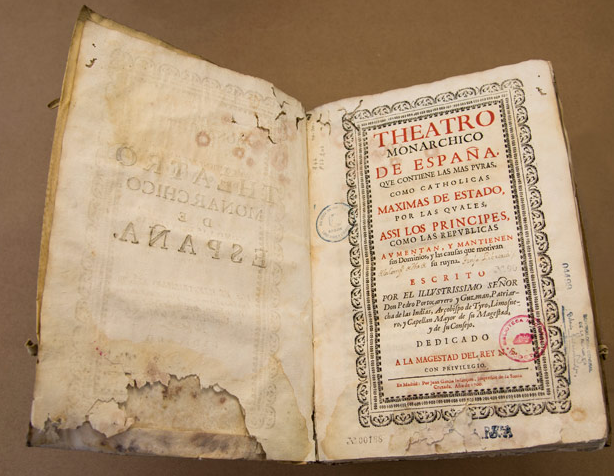 THEATRO
MONARCHICO
DE ESPAÑA,
QVE CONTIENE LAS MAS PVRAS,
COMO CATHOLICAS
MAXIMAS DE ESTADO,
POR LAS QVALES,
ASSI LOS PRINCIPES,
COMO LAS REPVBLICAS
AVMENTAN, Y MANTIENEN
sus Dominios, y las causas que motivan
su ruyna.
ESCRITO
POR EL ILLVSTRISSIMO SEÑOR
Don Pedro Portocarrero y Guzman, Patriar-
cha de las Indias, Arçobispo de Tyro, Limosne-
ro, y Capellan Mayor de su Magestad,
y de su Consejo.
DEDICADO
A LA MAGESTAD DEL REY N. S.
CON PRIVILEGIO.
En Madrid: Por Juan Garcia Infançon, Impressor de la Santa
Cruzada, Año de 1700.
Nº 00188
THEATRO
MONARCHICO
DE
ESPAÑA.
BIBLIOTECA